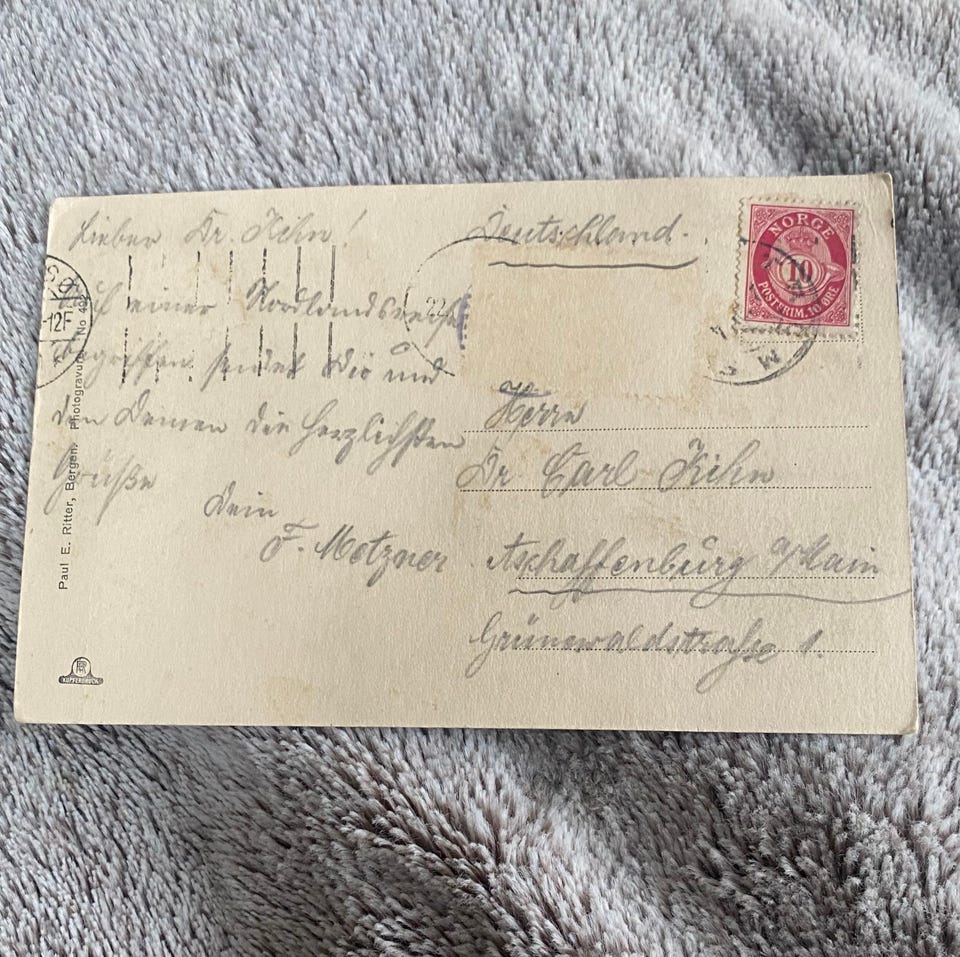 Lieber Dr. Kihn!
Auf einer Nordlandsreise
begriffen sendet Dir und
den Deinen die herzlichsten
Grüße
Dein
F. Metzner
Deutschland.
NORGE
10
POSTFRIM. 10 ØRE
Herrn
Dr. Carl Kihn
Aschaffenburg a/Main
Grünewaldstraße 1.
Paul E. Ritter, Bergen. Photogravure No 492
KUPFERDRUCK
-12F
22